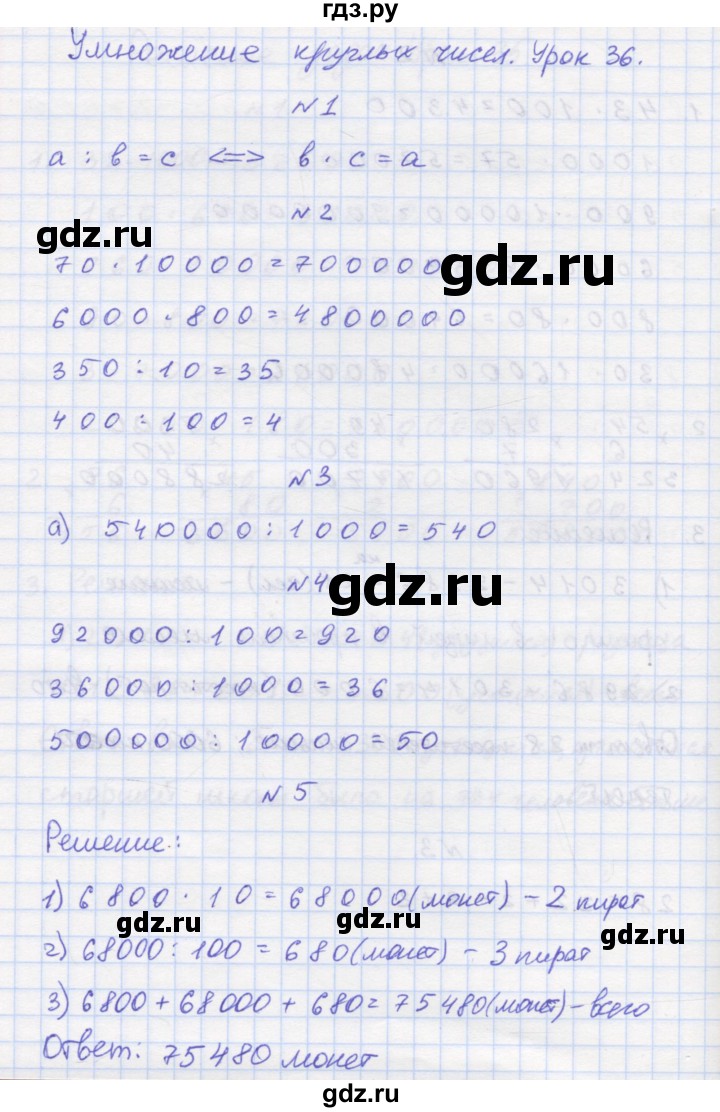 гдз.ру
Умножение круглых чисел. Урок 36.
№1
a : b = c <=> b · c = a
№2
gdz.ru
70 · 10000 = 700000
gdz.ru
6000 · 800 = 4800000
350 : 10 = 35
400 : 100 = 4
№3
а) 540000 : 1000 = 540
№4
gdz.ru
92000 : 100 = 920
36000 : 1000 = 36
500000 : 10000 = 50
№5
Решение:
1) 6800 · 10 = 68000 (монет) - 2 пират
gdz.ru
gdz.ru
2) 68000 : 100 = 680 (монет) - 3 пират
gdz.ru
3) 6800 + 68000 + 680 = 75480 (монет) - всего
Ответ: 75480 монет
gdz.ru